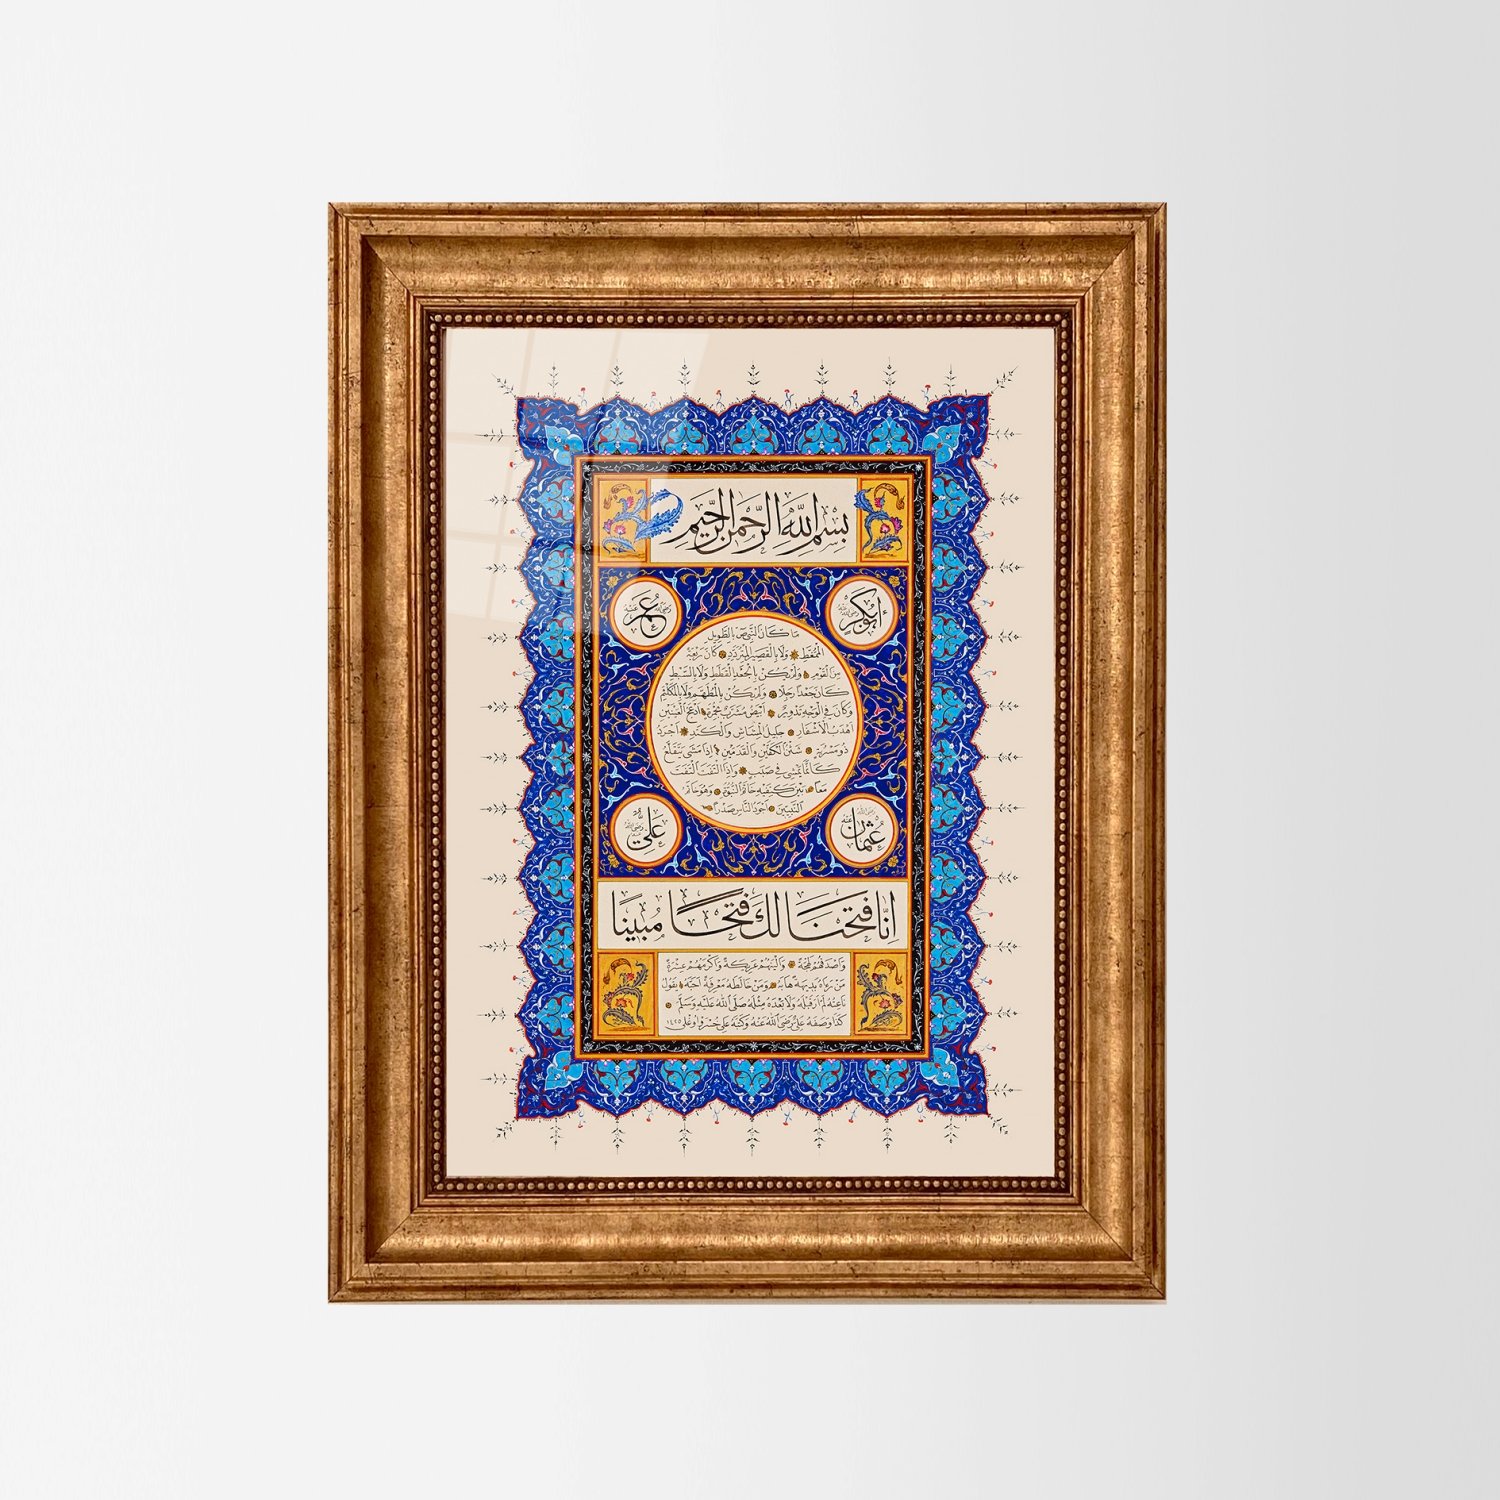 بِسْمِ اللّٰهِ الرَّحْمٰنِ الرَّحِيمِ
أَبُو بَكْرٍ رضي الله عنه
عُمَرُ رضي الله عنه
مَا كَانَ النَّبِيُّ بِالطَّوِيلِ
الْمُمَغَّطِ وَلَا بِالْقَصِيرِ الْمُتَرَدِّدِ كَانَ رَبْعَةً
مِنَ الْقَوْمِ وَلَمْ يَكُنْ بِالْجَعْدِ الْقَطَطِ وَلَا بِالسَّبِطِ
كَانَ جَعْدًا رَجِلًا وَلَمْ يَكُنْ بِالْمُطَهَّمِ وَلَا بِالْمُكَلْثَمِ
وَكَانَ فِي الْوَجْهِ تَدْوِيرٌ أَبْيَضُ مُشْرَبٌ بِحُمْرَةٍ أَدْعَجُ الْعَيْنَيْنِ
أَهْدَبُ الْأَشْفَارِ جَلِيلُ الْمُشَاشِ وَالْكَتَدِ أَجْرَدُ
ذُو مَسْرُبَةٍ شَثْنُ الْكَفَّيْنِ وَالْقَدَمَيْنِ إِذَا مَشَى يَتَقَلَّعُ
كَأَنَّمَا يَمْشِي فِي صَبَبٍ وَإِذَا الْتَفَتَ الْتَفَتَ
مَعًا بَيْنَ كَتِفَيْهِ خَاتَمُ النُّبُوَّةِ وَهُوَ خَاتَمُ
النَّبِيِّينَ أَجْوَدُ النَّاسِ صَدْرًا
عُثْمَانُ رضي الله عنه
عَلِيٌّ رضي الله عنه
إِنَّا فَتَحْنَا لَكَ فَتْحًا مُبِينًا
وَأَصْدَقُهُمْ لَهْجَةً وَأَلْيَنُهُمْ عَرِيكَةً وَأَكْرَمُهُمْ عِشْرَةً
مَنْ رَآهُ بَدِيهَةً هَابَهُ وَمَنْ خَالَطَهُ مَعْرِفَةً أَحَبَّهُ يَقُولُ
نَاعِتُهُ لَمْ أَرَ قَبْلَهُ وَلَا بَعْدَهُ مِثْلَهُ صَلَّى اللّٰهُ عَلَيْهِ وَسَلَّمَ
كَذَا وَصَفَهُ عَلِيٌّ رَضِيَ اللّٰهُ عَنْهُ وَكَتَبَهُ عَلِي